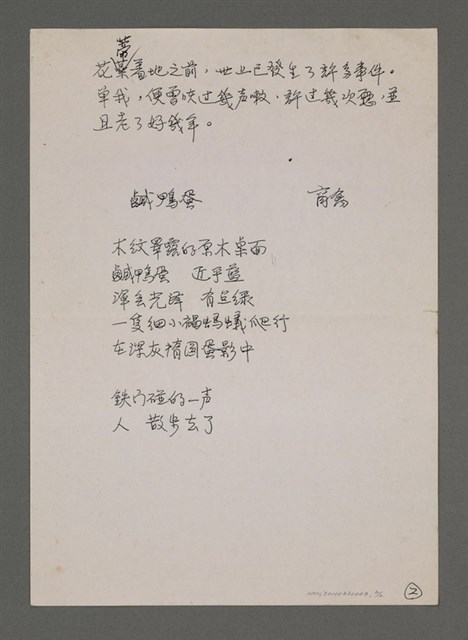 花蕾着地之前，世上已發生了許多事件。
單我，便曾咳过幾声嗽，許过幾次愿，並
且老了好幾年。
鹹鴨蛋 商禽
木紋畢露的原木桌面
鹹鴨蛋 近乎藍
渾圓光澤 有点绿
一隻細小褐螞蟻爬行
在深灰橢圓蛋影中
鉄门碰的一声
人 散步去了
2